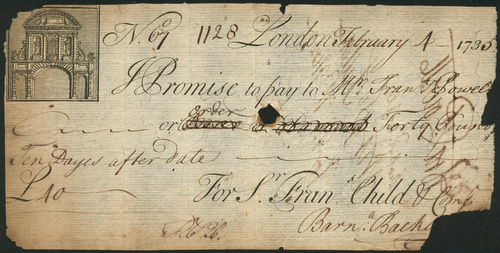 No. 67 1128 London February 4 1735
I Promise to pay to Mr. Fran Powel
or Order Forty Pounds
Ten Days after date
£40 For Sr. Fran. Child & Comp
Barn. Backw